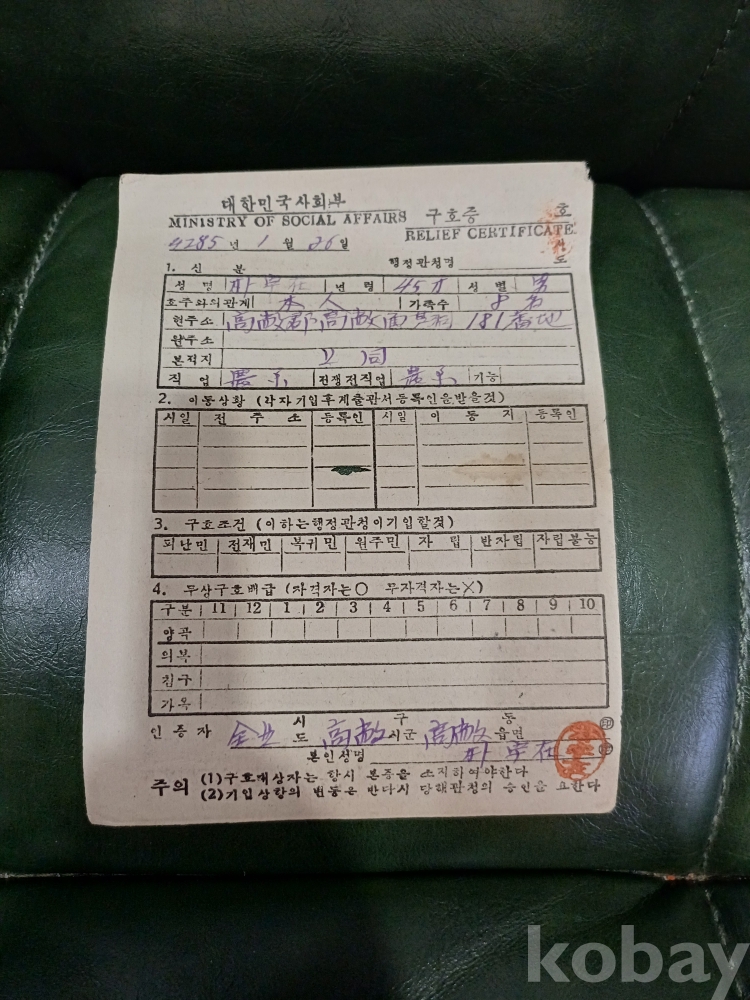 대한민국사회부
MINISTRY OF SOCIAL AFFAIRS 구호증 호
RELIEF CERTIFICATE
4285 년 1 월 26 일
1. 신 분 행정관청명 도
성 명 朴 在 년 령 45才 성 별 男
호주와의관계 本人 가족수 8 名
현주소 高敞郡高敞面 181番地
원주소
본적지 上 同
직 업 農 전쟁전직업 農 기능
2. 이동상황 (각자기입후제출관서등록인을받을것)
시일 전 주 소 등록인 시일 이 동 지 등록인
3. 구호조건 (이하는행정관청이기입할것)
피난민 전재민 복귀민 원주민 자 립 반자립 자립불능
4. 무상구호배급 (자격자는○ 무자격자는×)
구분 11 12 1 2 3 4 5 6 7 8 9 10
양곡
의복
침구
가옥
인증자 全北 시 도 高敞 구 시군 高敞 동 읍면 印
본인성명 朴 在
주의 (1)구호대상자는 항시 본증을 소지하여야한다
(2)기입상항의 변동은 반다시 당해관청의 승인을 요한다
kobay